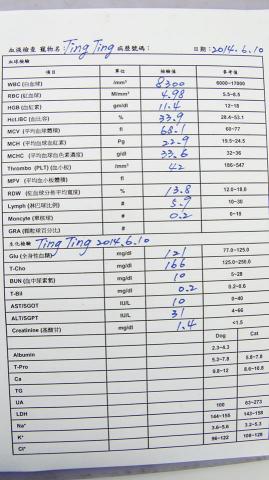 血液檢查 寵物名：Ting Ting 病歷號碼： 日期：2014.6.10
血球檢驗
項目 單位 檢驗值 參考值
WBC (白血球) /mm³ 8300 6000~17000
RBC (紅血球) M/mm³ 4.98 5.5~8.5
HGB (血紅素) gm/dl 11.4 12~18
Hct.IBC (血比容) % 33.9 28.4~53.1
MCV (平均血球體積) fl 68.1 60~77
MCH (平均血球血紅素) Pg 22.9 19.5~24.5
MCHC (平均血球血色素濃度) g/dl 33.6 32~36
Thrombo (PLT) (血小板) /mm³ 42 186~547
MPV (平均血小板體積) fl
RDW (紅血球分析平均寬度) % 13.8 12.0~18.0
Lymph (淋巴球比例) # 5.9 10~30
Moncyte (單核球) # 0.2 0~15
GRA (顆粒球百分比) #
生化檢驗 Ting Ting 2014.6.10
Glu (全身性血糖) mg/dl 121 77.0~125.0
T-Cho mg/dl 166 125.0~250.0
BUN (血中尿素氮) mg/dl 10 5~28
T-Bil mg/dl 0.2 0.2~0.6
AST/SGOT IU/L 10 0~40
ALT/SGPT IU/L 31 4~66
Creatinine (基酸甘) mg/dl 1.4 <1.5
Dog Cat
Albumin 2.3~4.3
T-Pro 5.3~7.8 5.8~7.8
Ca 9.8~12
TG
UA
LDH 100 63~273
Na⁺ 144~155 143~158
K⁺ 3.6~5.6 3.2~5.3
Cl⁺ 96~122 108~128